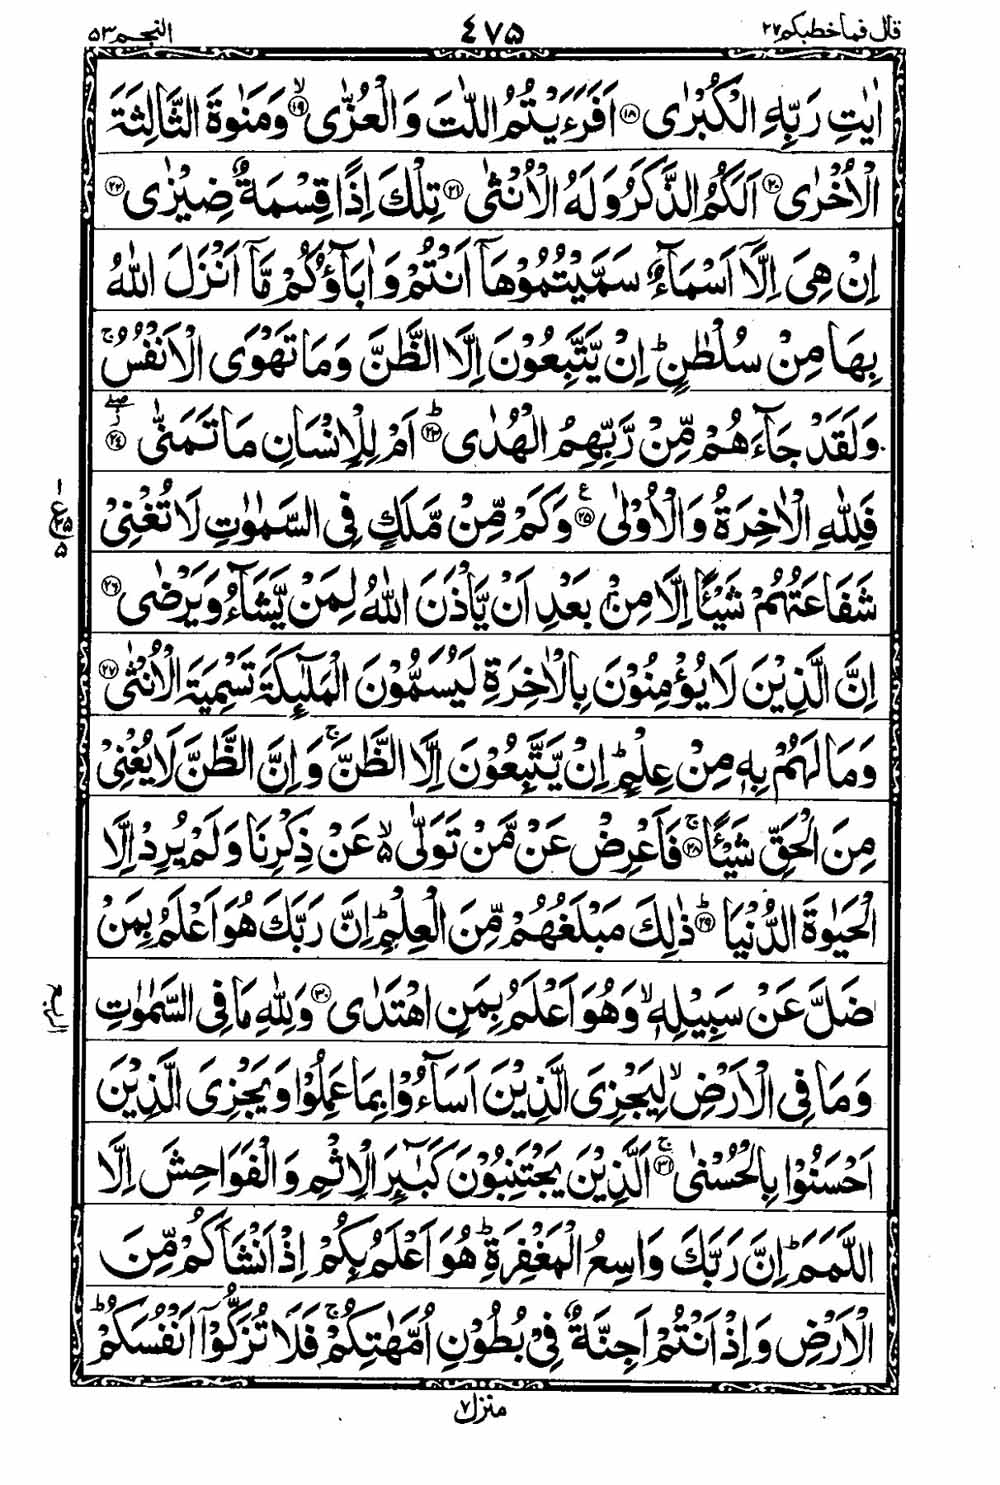 قال فما خطبكم ٢٧ ٤٧٥ النجم ٥٣
اٰيٰتِ رَبِّهِ الْكُبْرٰى ۝١٨ اَفَرَءَيْتُمُ اللّٰتَ وَالْعُزّٰى ۙ۝١٩ وَمَنٰوةَ الثَّالِثَةَ
الْاُخْرٰى ۝٢٠ اَلَكُمُ الذَّكَرُ وَلَهُ الْاُنْثٰى ۝٢١ تِلْكَ اِذًا قِسْمَةٌ ضِيْزٰى ۝٢٢
اِنْ هِىَ اِلَّاۤ اَسْمَآءٌ سَمَّيْتُمُوْهَاۤ اَنْتُمْ وَاٰبَآؤُكُمْ مَّاۤ اَنْزَلَ اللّٰهُ
بِهَا مِنْ سُلْطٰنٍ ؕ اِنْ يَّتَّبِعُوْنَ اِلَّا الظَّنَّ وَمَا تَهْوَى الْاَنْفُسُ ۚ
وَلَقَدْ جَآءَهُمْ مِّنْ رَّبِّهِمُ الْهُدٰى ؕ۝٢٣ اَمْ لِلْاِنْسَانِ مَا تَمَنّٰى ۝٢٤
فَلِلّٰهِ الْاٰخِرَةُ وَالْاُوْلٰى ۝٢٥ ع وَكَمْ مِّنْ مَّلَكٍ فِى السَّمٰوٰتِ لَا تُغْنِىْ
شَفَاعَتُهُمْ شَيْـًٔا اِلَّا مِنْۢ بَعْدِ اَنْ يَّاْذَنَ اللّٰهُ لِمَنْ يَّشَآءُ وَيَرْضٰى ۝٢٦
اِنَّ الَّذِيْنَ لَا يُؤْمِنُوْنَ بِالْاٰخِرَةِ لَيُسَمُّوْنَ الْمَلٰٓئِكَةَ تَسْمِيَةَ الْاُنْثٰى ۝٢٧
وَمَا لَهُمْ بِهٖ مِنْ عِلْمٍ ؕ اِنْ يَّتَّبِعُوْنَ اِلَّا الظَّنَّ ۚ وَاِنَّ الظَّنَّ لَا يُغْنِىْ
مِنَ الْحَقِّ شَيْـًٔا ۚ۝٢٨ فَاَعْرِضْ عَنْ مَّنْ تَوَلّٰى ۙ۵ عَنْ ذِكْرِنَا وَلَمْ يُرِدْ اِلَّا
الْحَيٰوةَ الدُّنْيَا ؕ۝٢٩ ذٰلِكَ مَبْلَغُهُمْ مِّنَ الْعِلْمِ ؕ اِنَّ رَبَّكَ هُوَ اَعْلَمُ بِمَنْ
ضَلَّ عَنْ سَبِيْلِهٖ ۙ وَهُوَ اَعْلَمُ بِمَنِ اهْتَدٰى ۝٣٠ وَلِلّٰهِ مَا فِى السَّمٰوٰتِ
وَمَا فِى الْاَرْضِ ۙ لِيَجْزِىَ الَّذِيْنَ اَسَآءُوْا بِمَا عَمِلُوْا وَيَجْزِىَ الَّذِيْنَ
اَحْسَنُوْا بِالْحُسْنٰى ۚ۝٣١ اَلَّذِيْنَ يَجْتَنِبُوْنَ كَبٰٓئِرَ الْاِثْمِ وَالْفَوَاحِشَ اِلَّا
اللَّمَمَ ؕ اِنَّ رَبَّكَ وَاسِعُ الْمَغْفِرَةِ ؕ هُوَ اَعْلَمُ بِكُمْ اِذْ اَنْشَاَكُمْ مِّنَ
الْاَرْضِ وَاِذْ اَنْتُمْ اَجِنَّةٌ فِىْ بُطُوْنِ اُمَّهٰتِكُمْ ۚ فَلَا تُزَكُّوْۤا اَنْفُسَكُمْ ؕ
منزل ٧